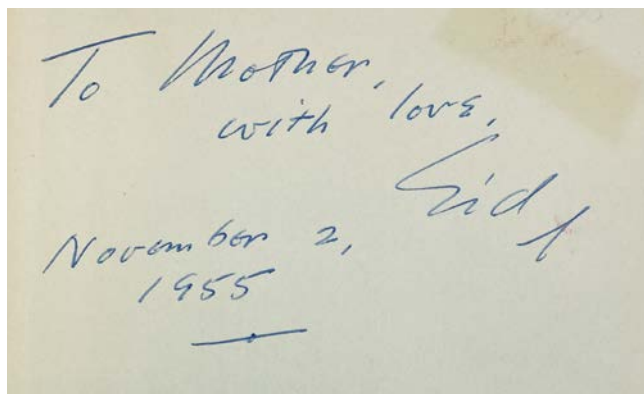 To Mother,
with love,
Sid
November 2,
1955